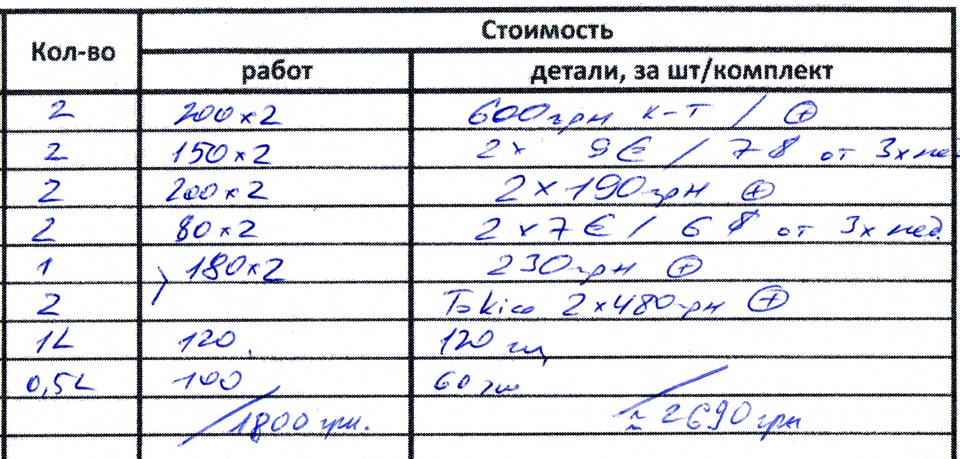 Кол-во Стоимость
работ детали, за шт/комплект
2 200x2 600грн к-т / ⊕
2 150x2 2x 9€ / 7$ от 3x нед
2 200x2 2x190грн ⊕
2 80x2 2x7€ / 6$ от 3x нед.
1 } 180x2 230грн ⊕
2 Tokico 2x480грн ⊕
1L 120. 120
0,5L 100 60
1800 грн. ≈ 2690грн